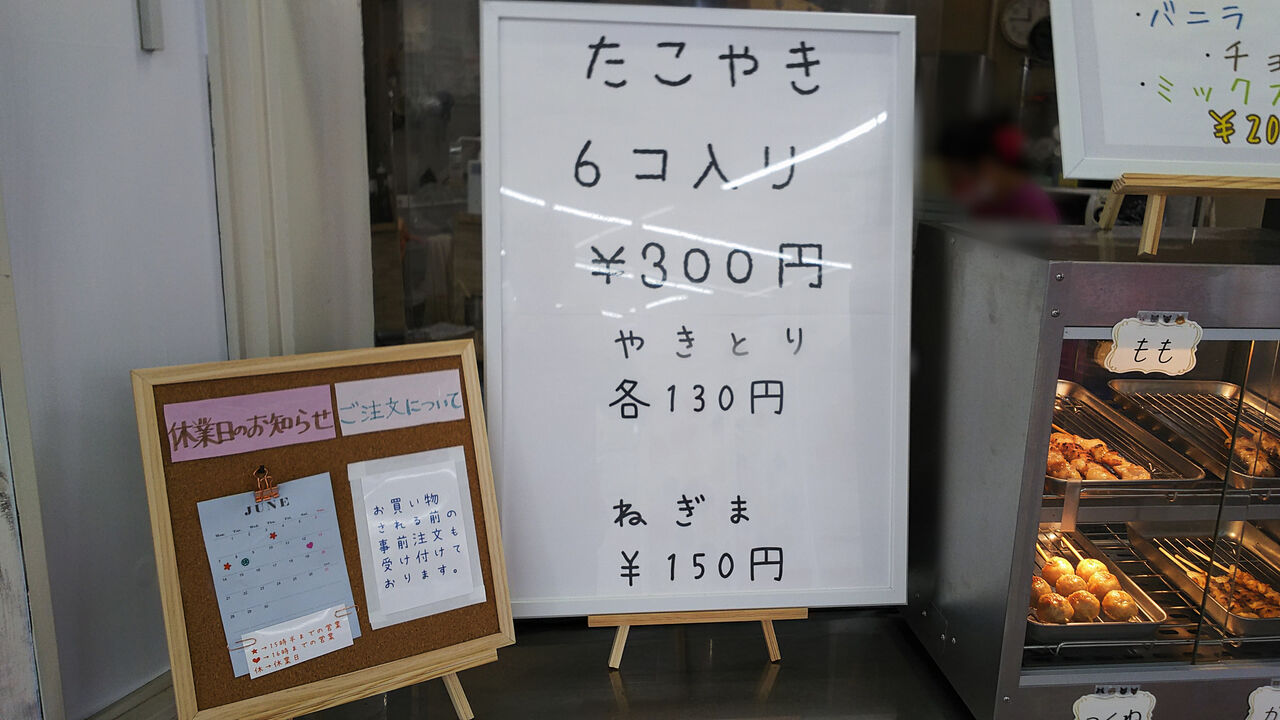 たこやき
6コ入り
¥300円
やきとり
各130円
ねぎま
¥150円
休業日のお知らせ
ご注文について
JUNE
お買い物
される前の
事前注文も
受け付けて
おります。
★→15時半までの営業
♥→16時までの営業
休→休業日
・バニラ
・チョ
・ミックス
¥20
もも
つくね